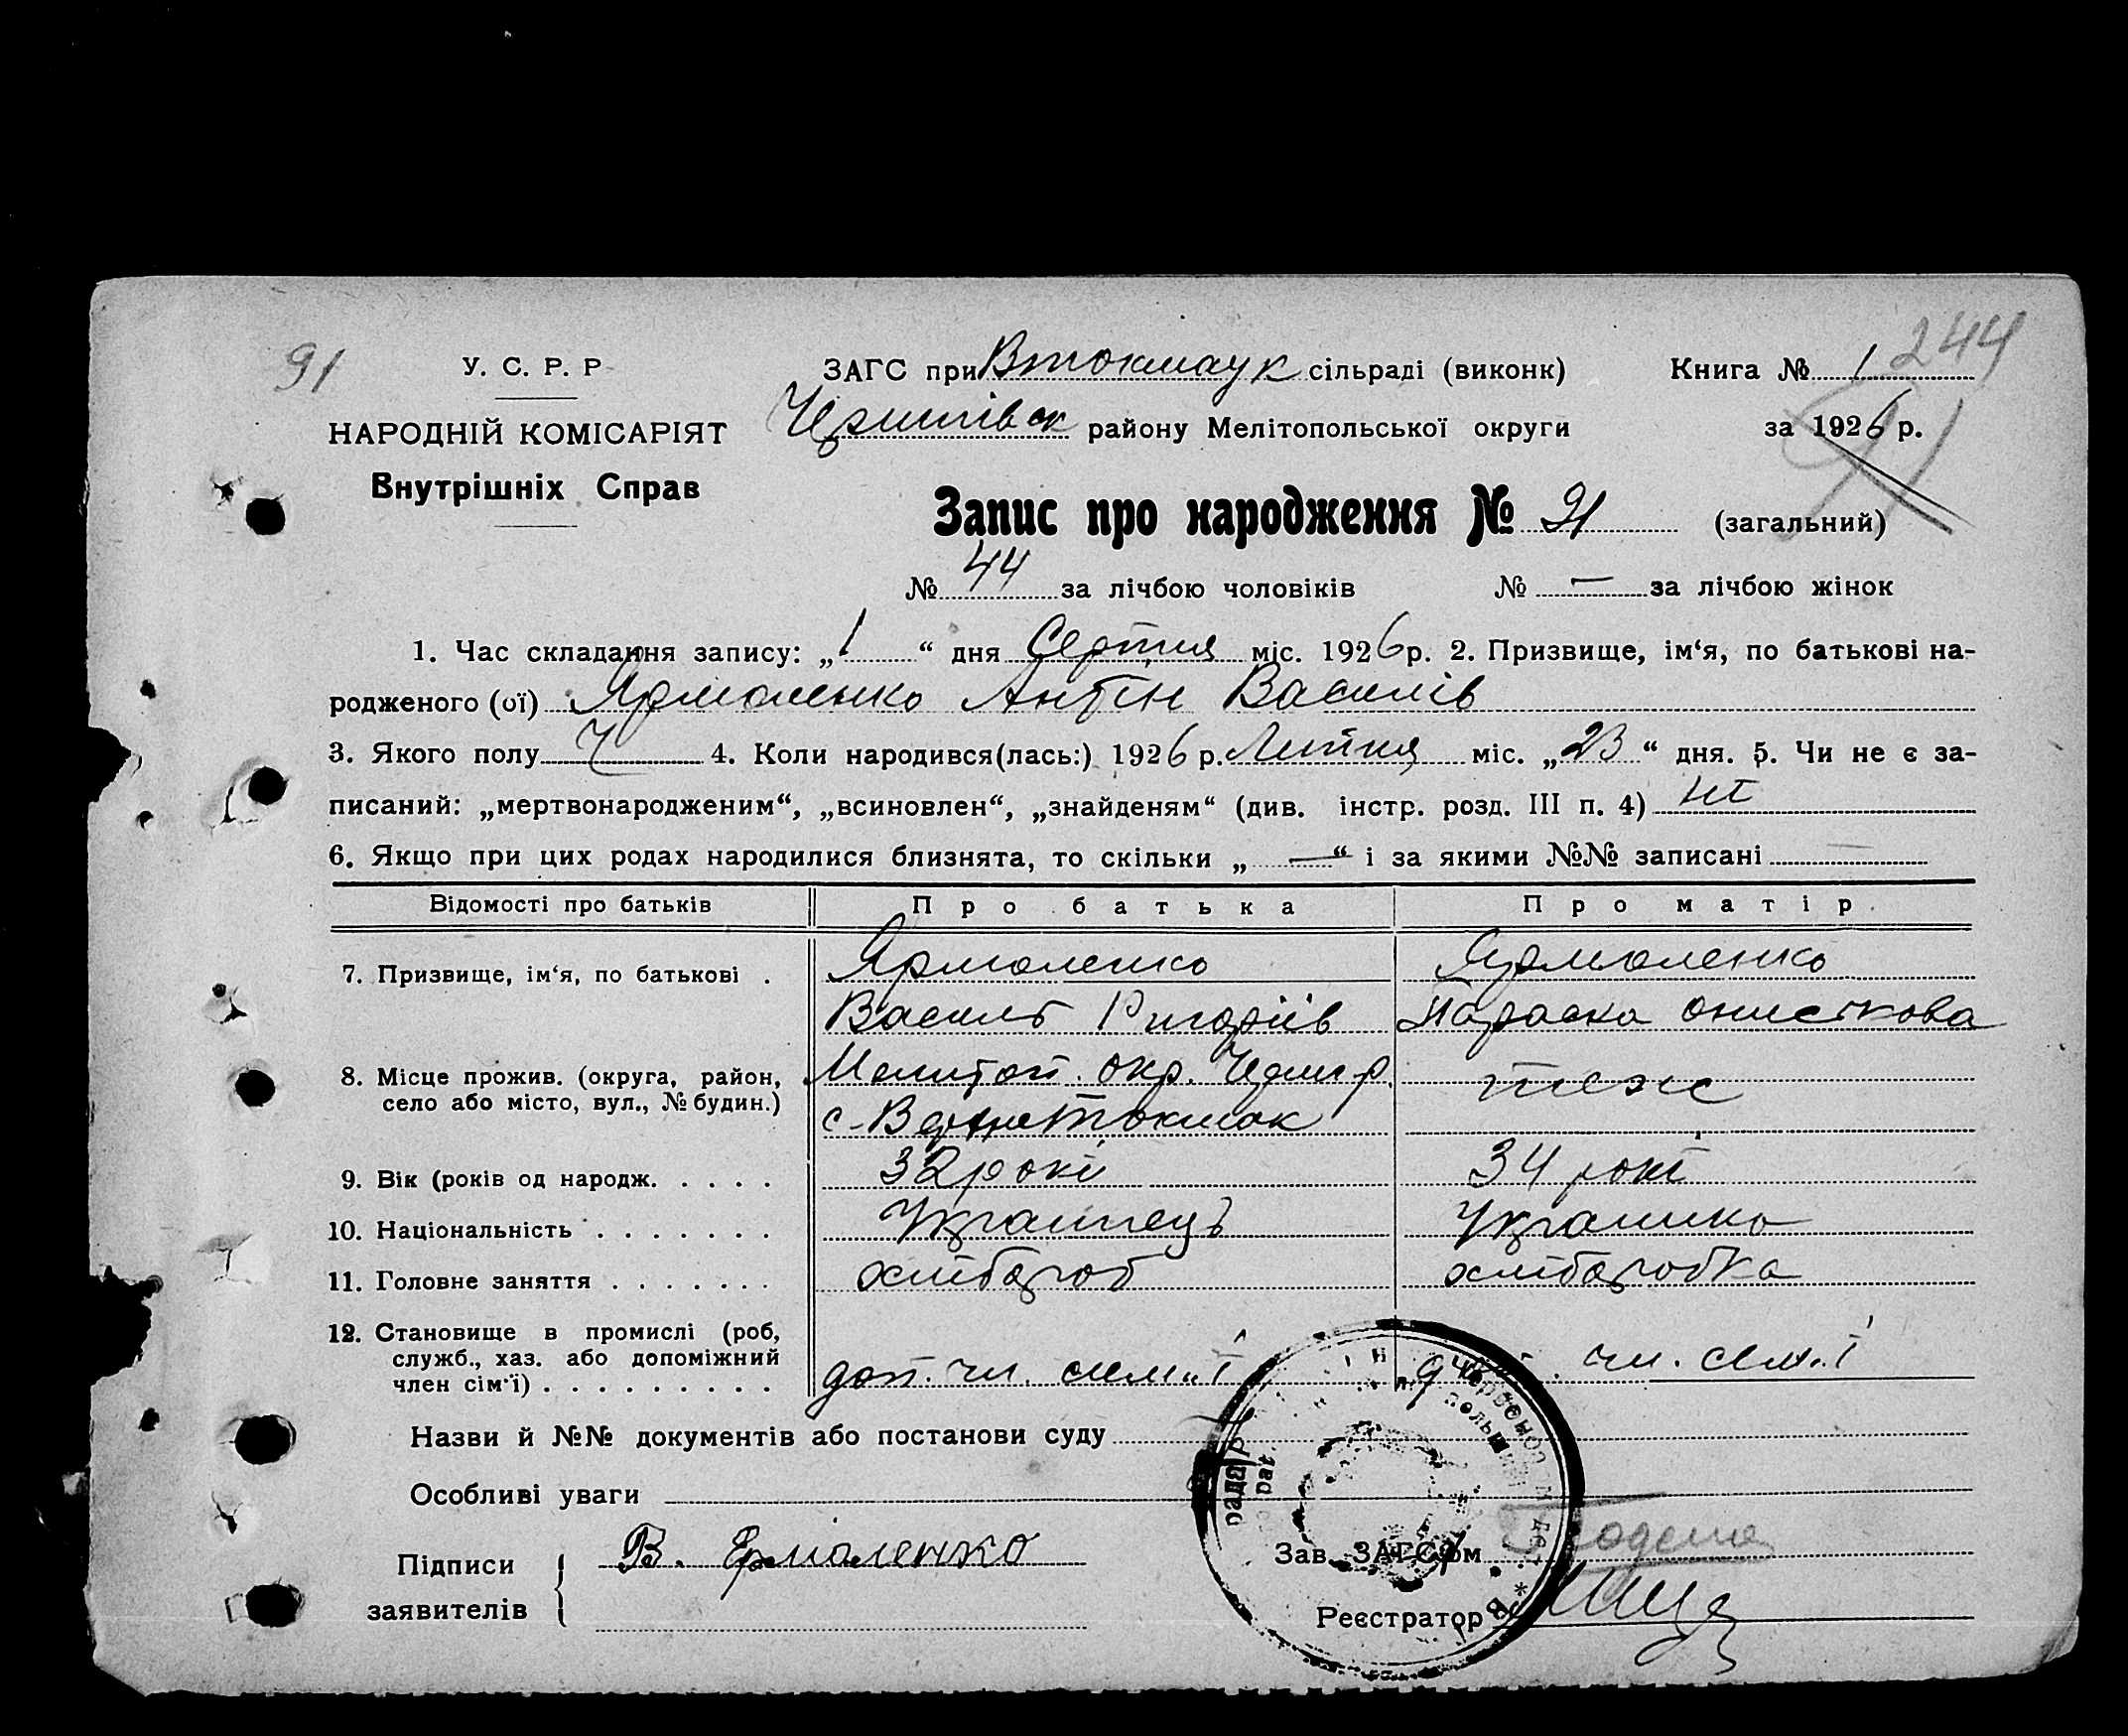 91
244
У. С. Р. Р
ЗАГС при Втокмаук сільраді (виконк)
Книга № 1
НАРОДНІЙ КОМІСАРІЯТ
району Мелітопольської округи
за 1926 р.
Внутрішніх Справ
Запис про народження № 91 (загальний)
№ 44 за лічбою чоловіків № — за лічбою жінок
1. Час складання запису: „1“ дня Серпня міс. 1926 р. 2. Призвище, ім‘я, по батькові на-
родженого (ої) Ярмоленко Антін Василів
3. Якого полу Ч 4. Коли народився(лась:) 1926 р. Липня міс. „23“ дня. 5. Чи не є за-
писаний: „мертвонародженим“, „всиновлен“, „знайденям“ (див. інстр. розд. III п. 4) ні
6. Якщо при цих родах народилися близнята, то скільки „—“ і за якими №№ записані —
Відомості про батьків Про батька Про матір
7. Призвище, ім‘я, по батькові . Ярмоленко Ярмоленко
Василь Григорів Параска Онисткова
8. Місце прожив. (округа, район, Мелитоп. окр. Черниг р. теж
село або місто, вул., № будин.) с-ВерхнеТокмак
9. Вік (років од народж. . . . . 32 рокі 34 рокі
10. Національність . . . . . . . Украинець Украинка
11. Головне заняття . . . . . . . хлібороб хліборобка
12. Становище в промислі (роб,
служб., хаз. або допоміжний
член сім‘ї) . . . . . . . . . доп. чл. сем“ї доп. чл. сем“ї
Назви й №№ документів або постанови суду
Особливі уваги
Підписи В. Ермоленко
заявителів
Зав. ЗАГС‘ом
Реєстратор